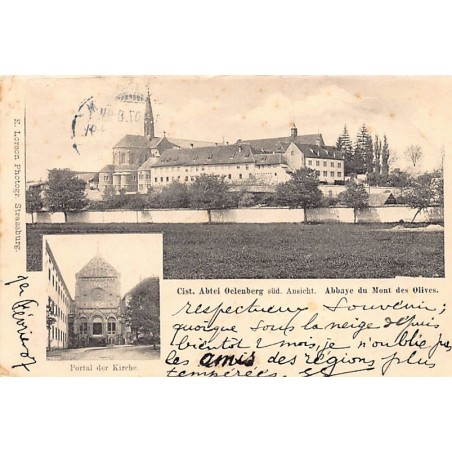 E. Lorson Photogr. Strassburg.
Cist. Abtei Oelenberg süd. Ansicht. Abbaye du Mont des Olives.
Portal der Kirche.
1er Février 07
respectueux Souvenir;
quoique sous la neige depuis
bientôt 2 mois, je n'oublie pas
les amis des régions plus
tempérées.